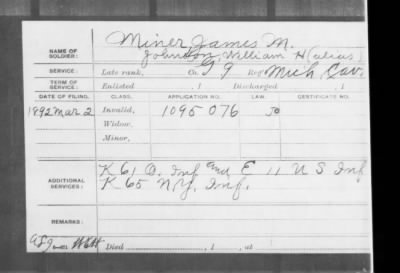 Miner, James M.
NAME OF SOLDIER: Johnson, William H (alias)
SERVICE: Late rank, Co. G 9 Reg't Mich Cav.
TERM OF SERVICE: Enlisted , 1 Discharged , 1
DATE OF FILING. CLASS. APPLICATION NO. LAW. CERTIFICATE NO.
1892 Mar 2 Invalid, 1095 076
Widow,
Minor,
K 61 O. Inf and E 11 U S Inf
ADDITIONAL SERVICES: K 65 N.Y. Inf.
REMARKS:
Died , 1 , at